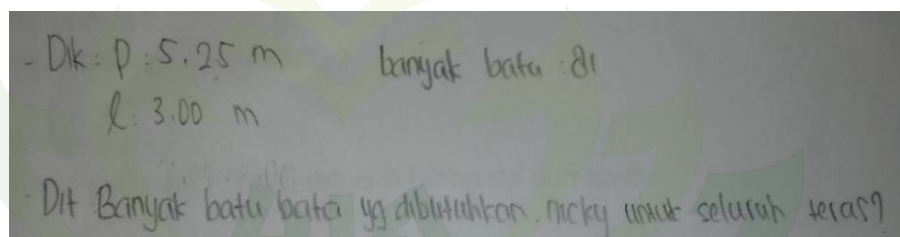 - Dik : p : 5.25 m banyak batu : 81
l : 3.00 m
- Dit Banyak batu bata yg dibutuhkan nicky untuk seluruh teras?